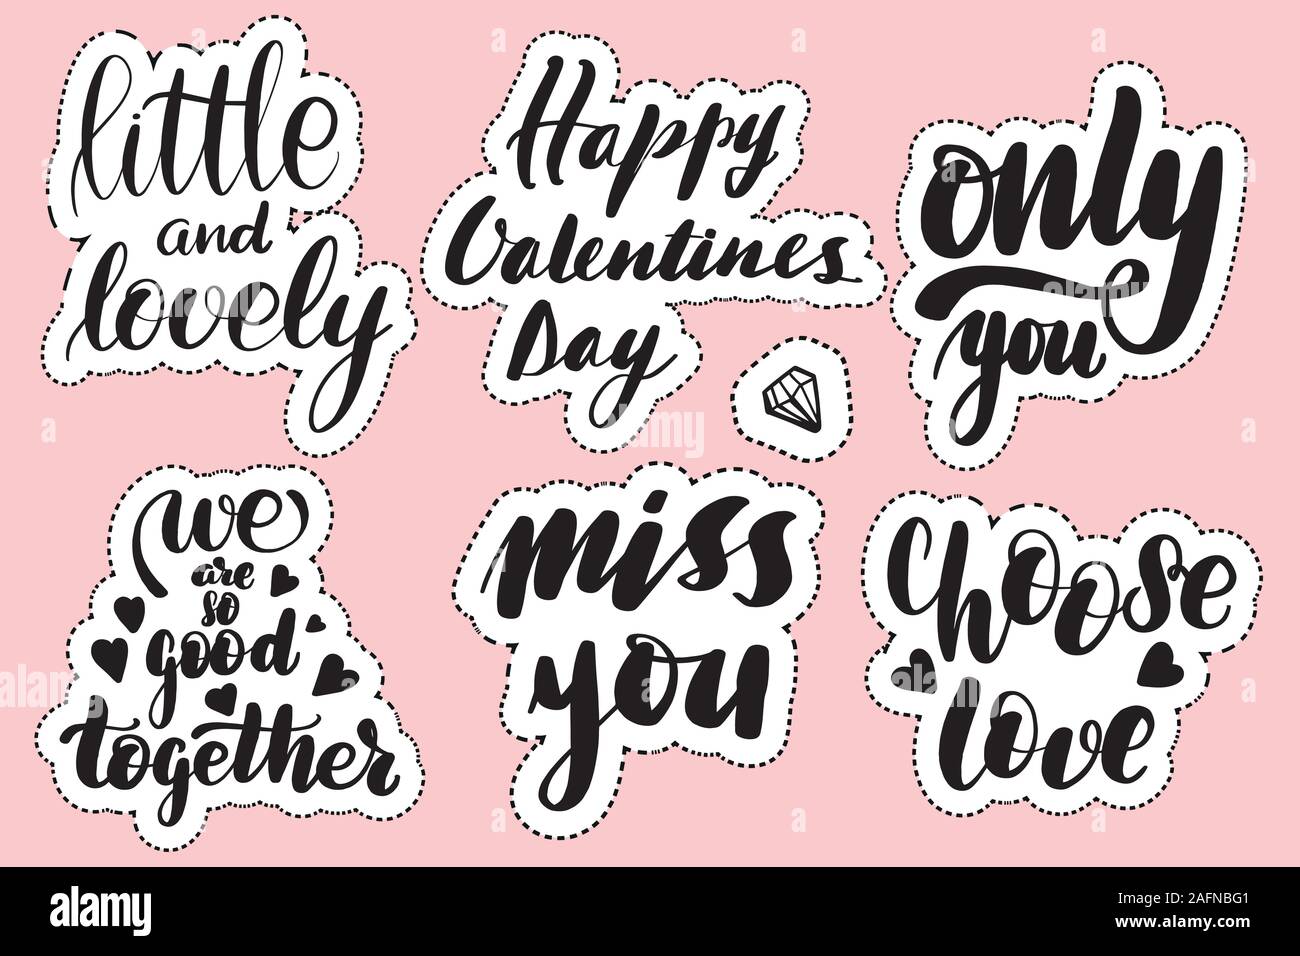 little
and
lovely
Happy
Valentines
Day
only
you
we
are
so
good
together
miss
you
choose
love
alamy
Image ID: 2AFNBG1
www.alamy.com